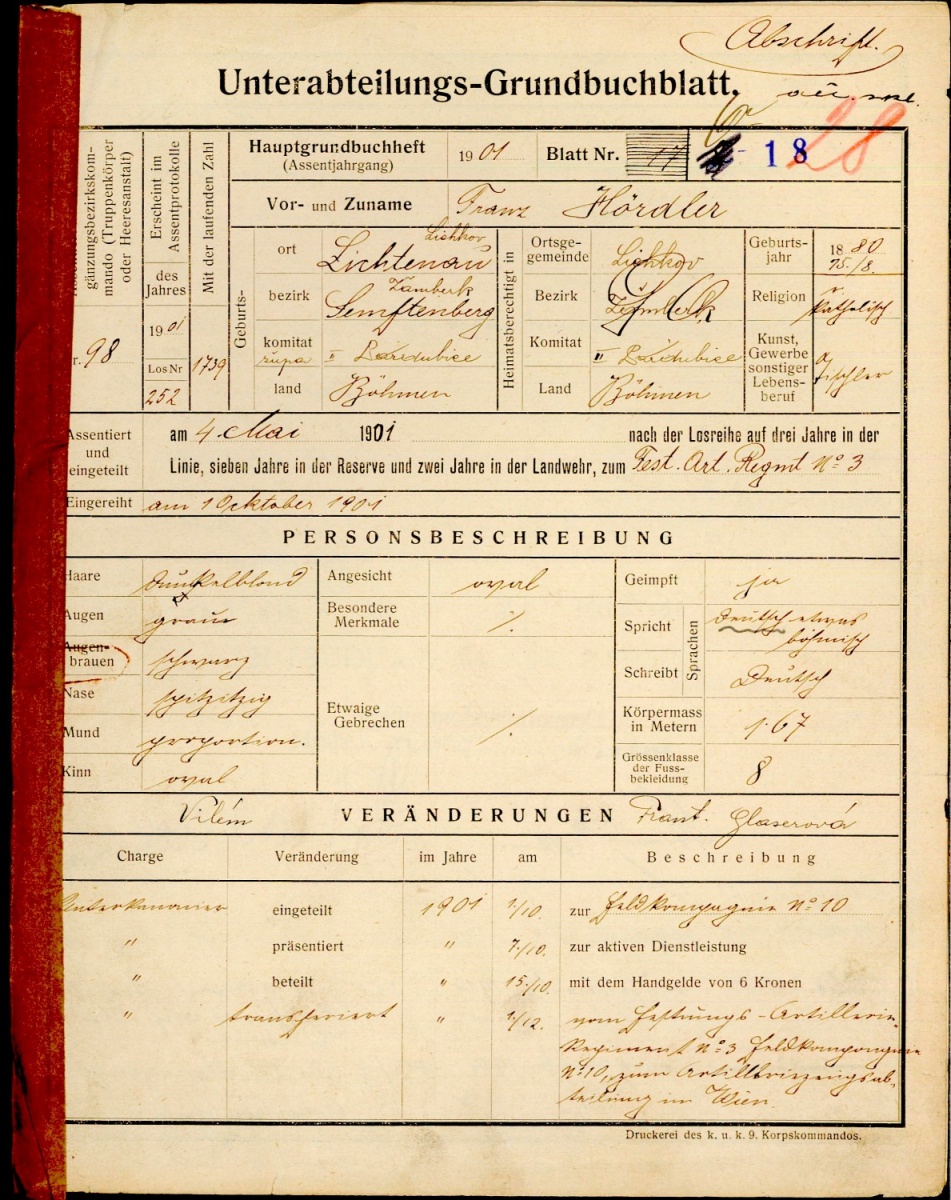 Abschrift.
Unterabteilungs-Grundbuchblatt.
gänzungsbezirkskom-
mando (Truppenkörper
oder Heeresanstalt)
r. 98
Erscheint im
Assentprotokolle
des
Jahres
1901
Los Nr
252
Mit der laufenden Zahl
1739
Hauptgrundbuchheft
(Assentjahrgang)
1901
Blatt Nr. 17
18
28
Vor- und Zuname Franz Hördler
Geburts-
ort Lichkov
Lichtenau
bezirk Žamberk
Semftenberg
komitat
župa II Pardubice
land Böhmen
Heimatsberechtigt in
Ortsge-
gemeinde Lichkov
Bezirk Žamberk
Komitat II Pardubice
Land Böhmen
Geburts-
jahr 1880
15./8.
Religion Katholisch
Kunst,
Gewerbe
sonstiger
Lebens-
beruf
Tischler
Assentiert
und
eingeteilt
am 4. Mai 1901 nach der Losreihe auf drei Jahre in der
Linie, sieben Jahre in der Reserve und zwei Jahre in der Landwehr, zum Fest. Art. Regmt No 3
Eingereiht am 1 Oktober 1901
PERSONSBESCHREIBUNG
Haare dunkelblond
Augen grau
Augen-
brauen schwarz
Nase spitzitzig
Mund proportion.
Kinn oval
Angesicht oval
Besondere
Merkmale ./.
Etwaige
Gebrechen ./.
Geimpft ja
Sprachen
Spricht Deutsch etwas
böhmisch
Schreibt Deutsch
Körpermass
in Metern 1·67
Grössenklasse
der Fuss-
bekleidung 8
Vilém VERÄNDERUNGEN Frant. Glaserová
Charge Veränderung im Jahre am Beschreibung
Unterkanonier eingeteilt 1901 1/10. zur Feldkompagnie No 10
" präsentiert " 7/10. zur aktiven Dienstleistung
" beteilt " 15/10. mit dem Handgelde von 6 Kronen
" transferiert " 1/12. vom Festungs-Artillerie-
Regiment No 3 Feldkompagnie
No 10, zum Artilleriezeugsab-
teilung in Wien
Druckerei des k. u. k. 9. Korpskommandos.